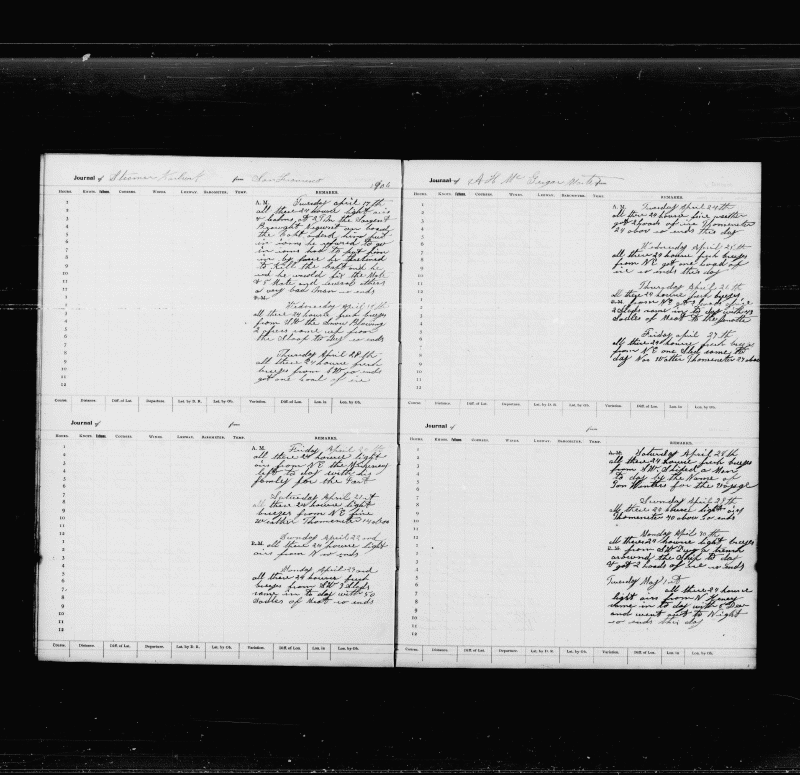 Journal of Steamer Karluk from San Francisco 1906
HOURS. KNOTS. Fathoms. COURSES. WINDS. LEEWAY. BAROMETER. TEMP. REMARKS.
A. M. Tuesday April 17th
all these 24 hours light airs
& calms at
the Capt
in irons he refused to go
in irons had to put him
in by force he threatened
to kill the Capt and he
said he would fix the Mate
& Mate and several others
a very bad man so ends
P. M.
Wednesday April 18th
all these 24 hours fresh
breezes from SW the snow Blowing
up from
the Ship to day so ends
Thursday April 19th
all these 24 hours fresh
breezes from SW so ends
got one load of ice
Course. Distance. Diff. of Lat. Departure. Lat. by D. R. Lat. by Ob. Variation. Diff. of Lon. Lon. in Lon. by Ob.
Journal of from
HOURS. KNOTS. Fathoms. COURSES. WINDS. LEEWAY. BAROMETER. TEMP. REMARKS.
A. M. Friday April 20th
all these 24 hours light
airs from NE the
left to day with his
family for the
Saturday April 21st
all these 24 hours light
breezes from NE fine
weather Thomometer 14 above
Sunday April 22nd
P. M. all these 24 hours light
airs from N so ends
Monday April 23rd
all these 24 hours fresh
breezes from SW 3 Sleds
came in to day with 50
Saddles of Meat so ends
Course. Distance. Diff. of Lat. Departure. Lat. by D. R. Lat. by Ob. Variation. Diff. of Lon. Lon. in Lon. by Ob.
Journal of A H Mc Gregor Master from
HOURS. KNOTS. Fathoms. COURSES. WINDS. LEEWAY. BAROMETER. TEMP. REMARKS.
A. M. Tuesday April 24th
all these 24 hours fine weather
got 2 loads of ice Thomometer
24 above so ends this day
Wednesday April 25th
all these 24 hours fresh breezes
from NE got one load of
ice so ends this day
Thursday April 26th
all these 24 hours fresh breezes
P. M. from NE
2 Sleds came in to day with
Saddles of Meat to the
Friday April 27th
all these 24 hours fresh breezes
from NE one Sled came to
day Nor Wather Thomometer 24 above
Course. Distance. Diff. of Lat. Departure. Lat. by D. R. Lat. by Ob. Variation. Diff. of Lon. Lon. in Lon. by Ob.
Journal of from
HOURS. KNOTS. Fathoms. COURSES. WINDS. LEEWAY. BAROMETER. TEMP. REMARKS.
A. M. Saturday April 28th
all these 24 hours fresh breezes
from SW Shiped a Man
to day by the Name of
for the Voyage
Sunday April 29th
all these 24 hours light airs
Thomometer 40 above So ends
Monday April 30th
all these 24 hours light breezes
P. M. from SW Dug a trench
around the Ship to day
& got 2 loads of ice so ends
Tuesday May 1st
all these 24 hours
light airs from N
came in to day with 5 Deer
and went out to Night
so ends this day
Course. Distance. Diff. of Lat. Departure. Lat. by D. R. Lat. by Ob. Variation. Diff. of Lon. Lon. in Lon. by Ob.